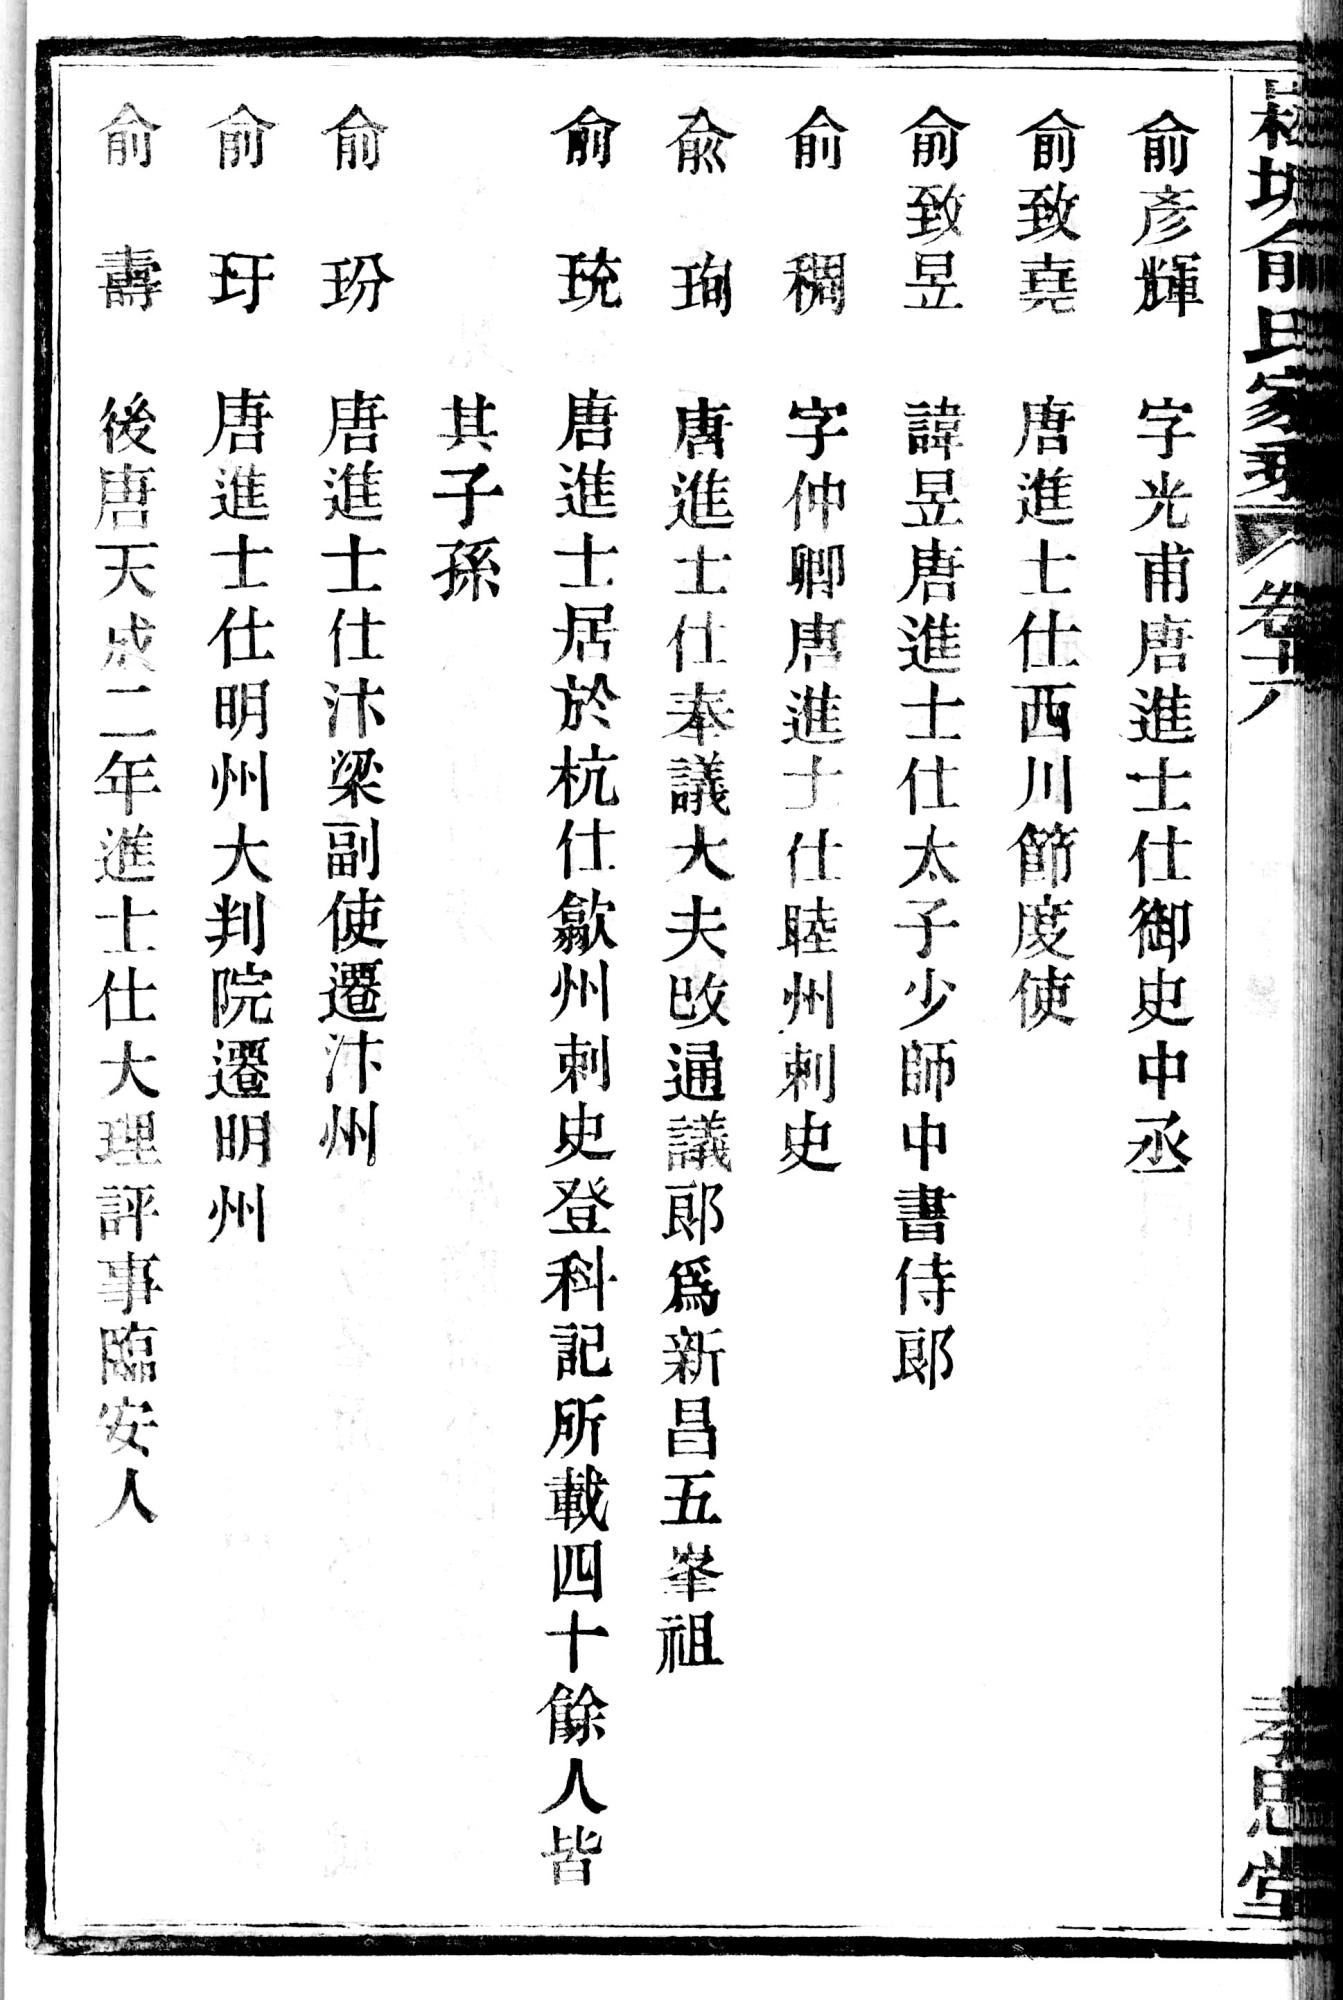 俞彥輝　字光甫唐進士仕御史中丞
俞致堯　唐進士仕西川節度使
俞致昱　諱昱唐進士仕太子少師中書侍郎
俞　稠　字仲卿唐進士仕睦州刺史
俞　珣　唐進士仕奉議大夫改通議郎爲新昌五峯祖
俞　珫　唐進士居於杭仕歙州刺史登科記所載四十餘人皆
其子孫
俞　玢　唐進士仕汴梁副使遷汴州
俞　玗　唐進士仕明州大判院遷明州
俞　壽　後唐天成二年進士仕大理評事臨安人
坊俞氏家乘　卷十八　孝思堂